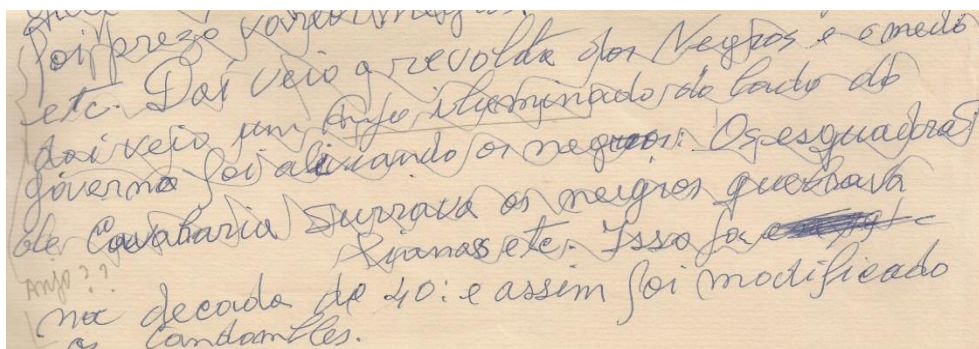 foi prezo varios negros
etc. Daí veio a revolta dos Negros e o medo
daí veio um Anjo iluminado do lado do
governo foi aliciando os negros: Os esquadrão
de Cavalaria Surrava os negros quebrava
etc. Isso foi
Anjo??
na decada de 40: e assim foi modificado
os Candomblés.